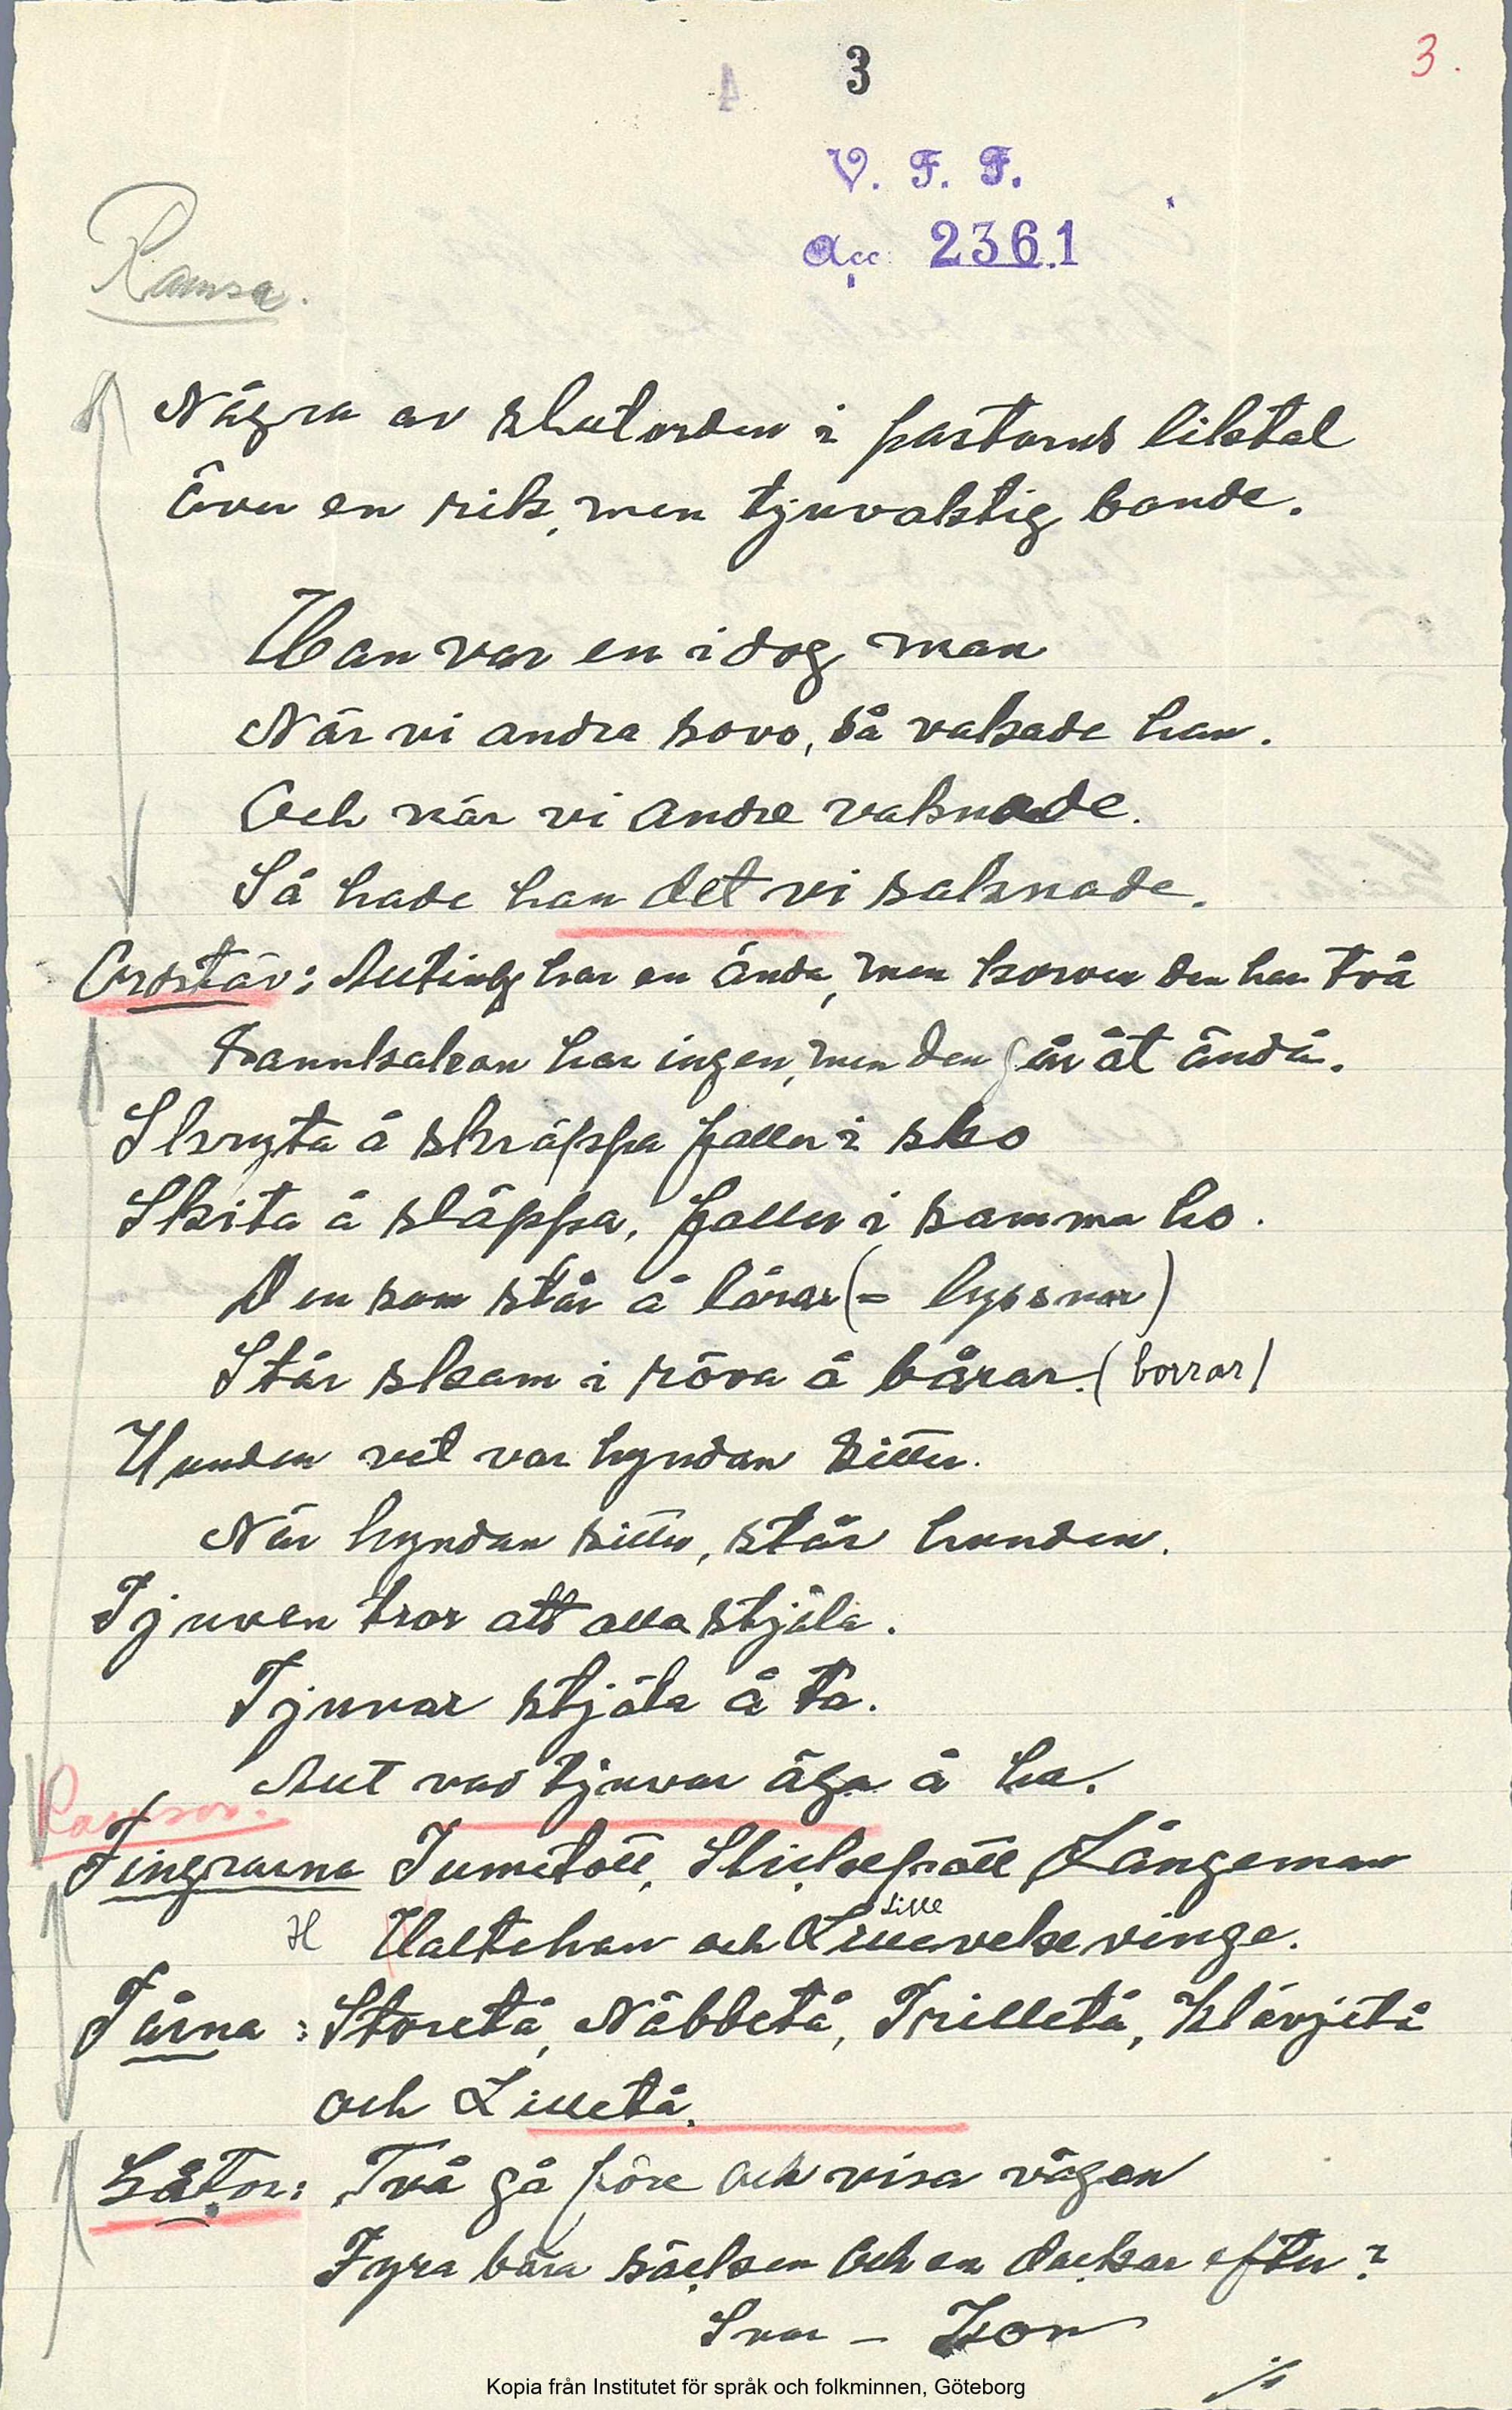 3
3.
V. F. F.
Acc 2361
Ramsa.
Några av slutorden i pastorns liktal
över en rik, men tjuvaktig bonde.
Han var en idog man
När vi andra sovo, så vakade han.
Och när vi andre vaknade.
Så hade han det vi saknade.
Ordstäv: Allting har en ände, men korven den har två
kannkakan har ingen, men den går åt ändå.
Skryta å skräppa faller i sko
Skita å släppa, faller i samma ho.
Den som står å lårar (= lyssnar)
Står skam i röva å bårar. (borrar)
Hunden vet var hyndan sitter.
När hyndan sitter, står hunden.
Tjuven tror att alla stjäla.
Tjuvar stjäla å ta.
Allt vad tjuvar äga å ha.
Ramsor.
Fingrarna Tumetott, Slickepott Långeman
Lille
H Haltehan och Lillavekevinge.
Tårna: Storetå, Näbbetå, Trilletå, Klåvjetå
och Lilletå.
Gåtor: Två gå före och visa vägen
Fyra bära säcken och en dackar efter?
Svar - Kon
Kopia från Institutet för språk och folkminnen, Göteborg